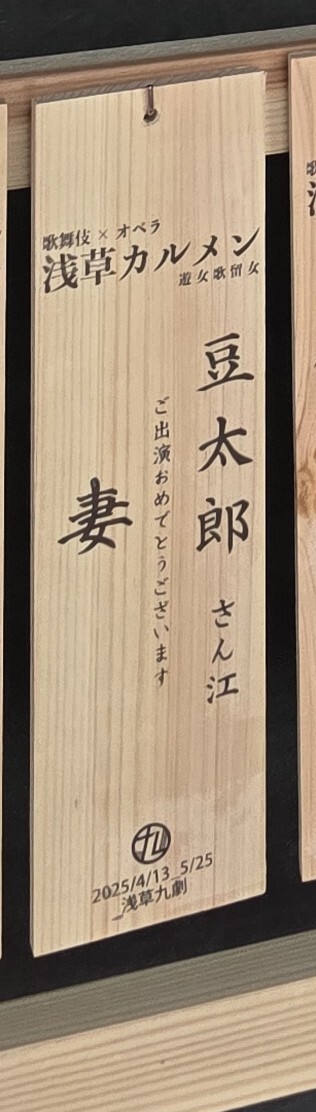 歌舞伎×オペラ
浅草カルメン
遊女歌留女
豆太郎さん江
ご出演おめでとうございます
妻
九
2025/4/13_5/25
_浅草九劇